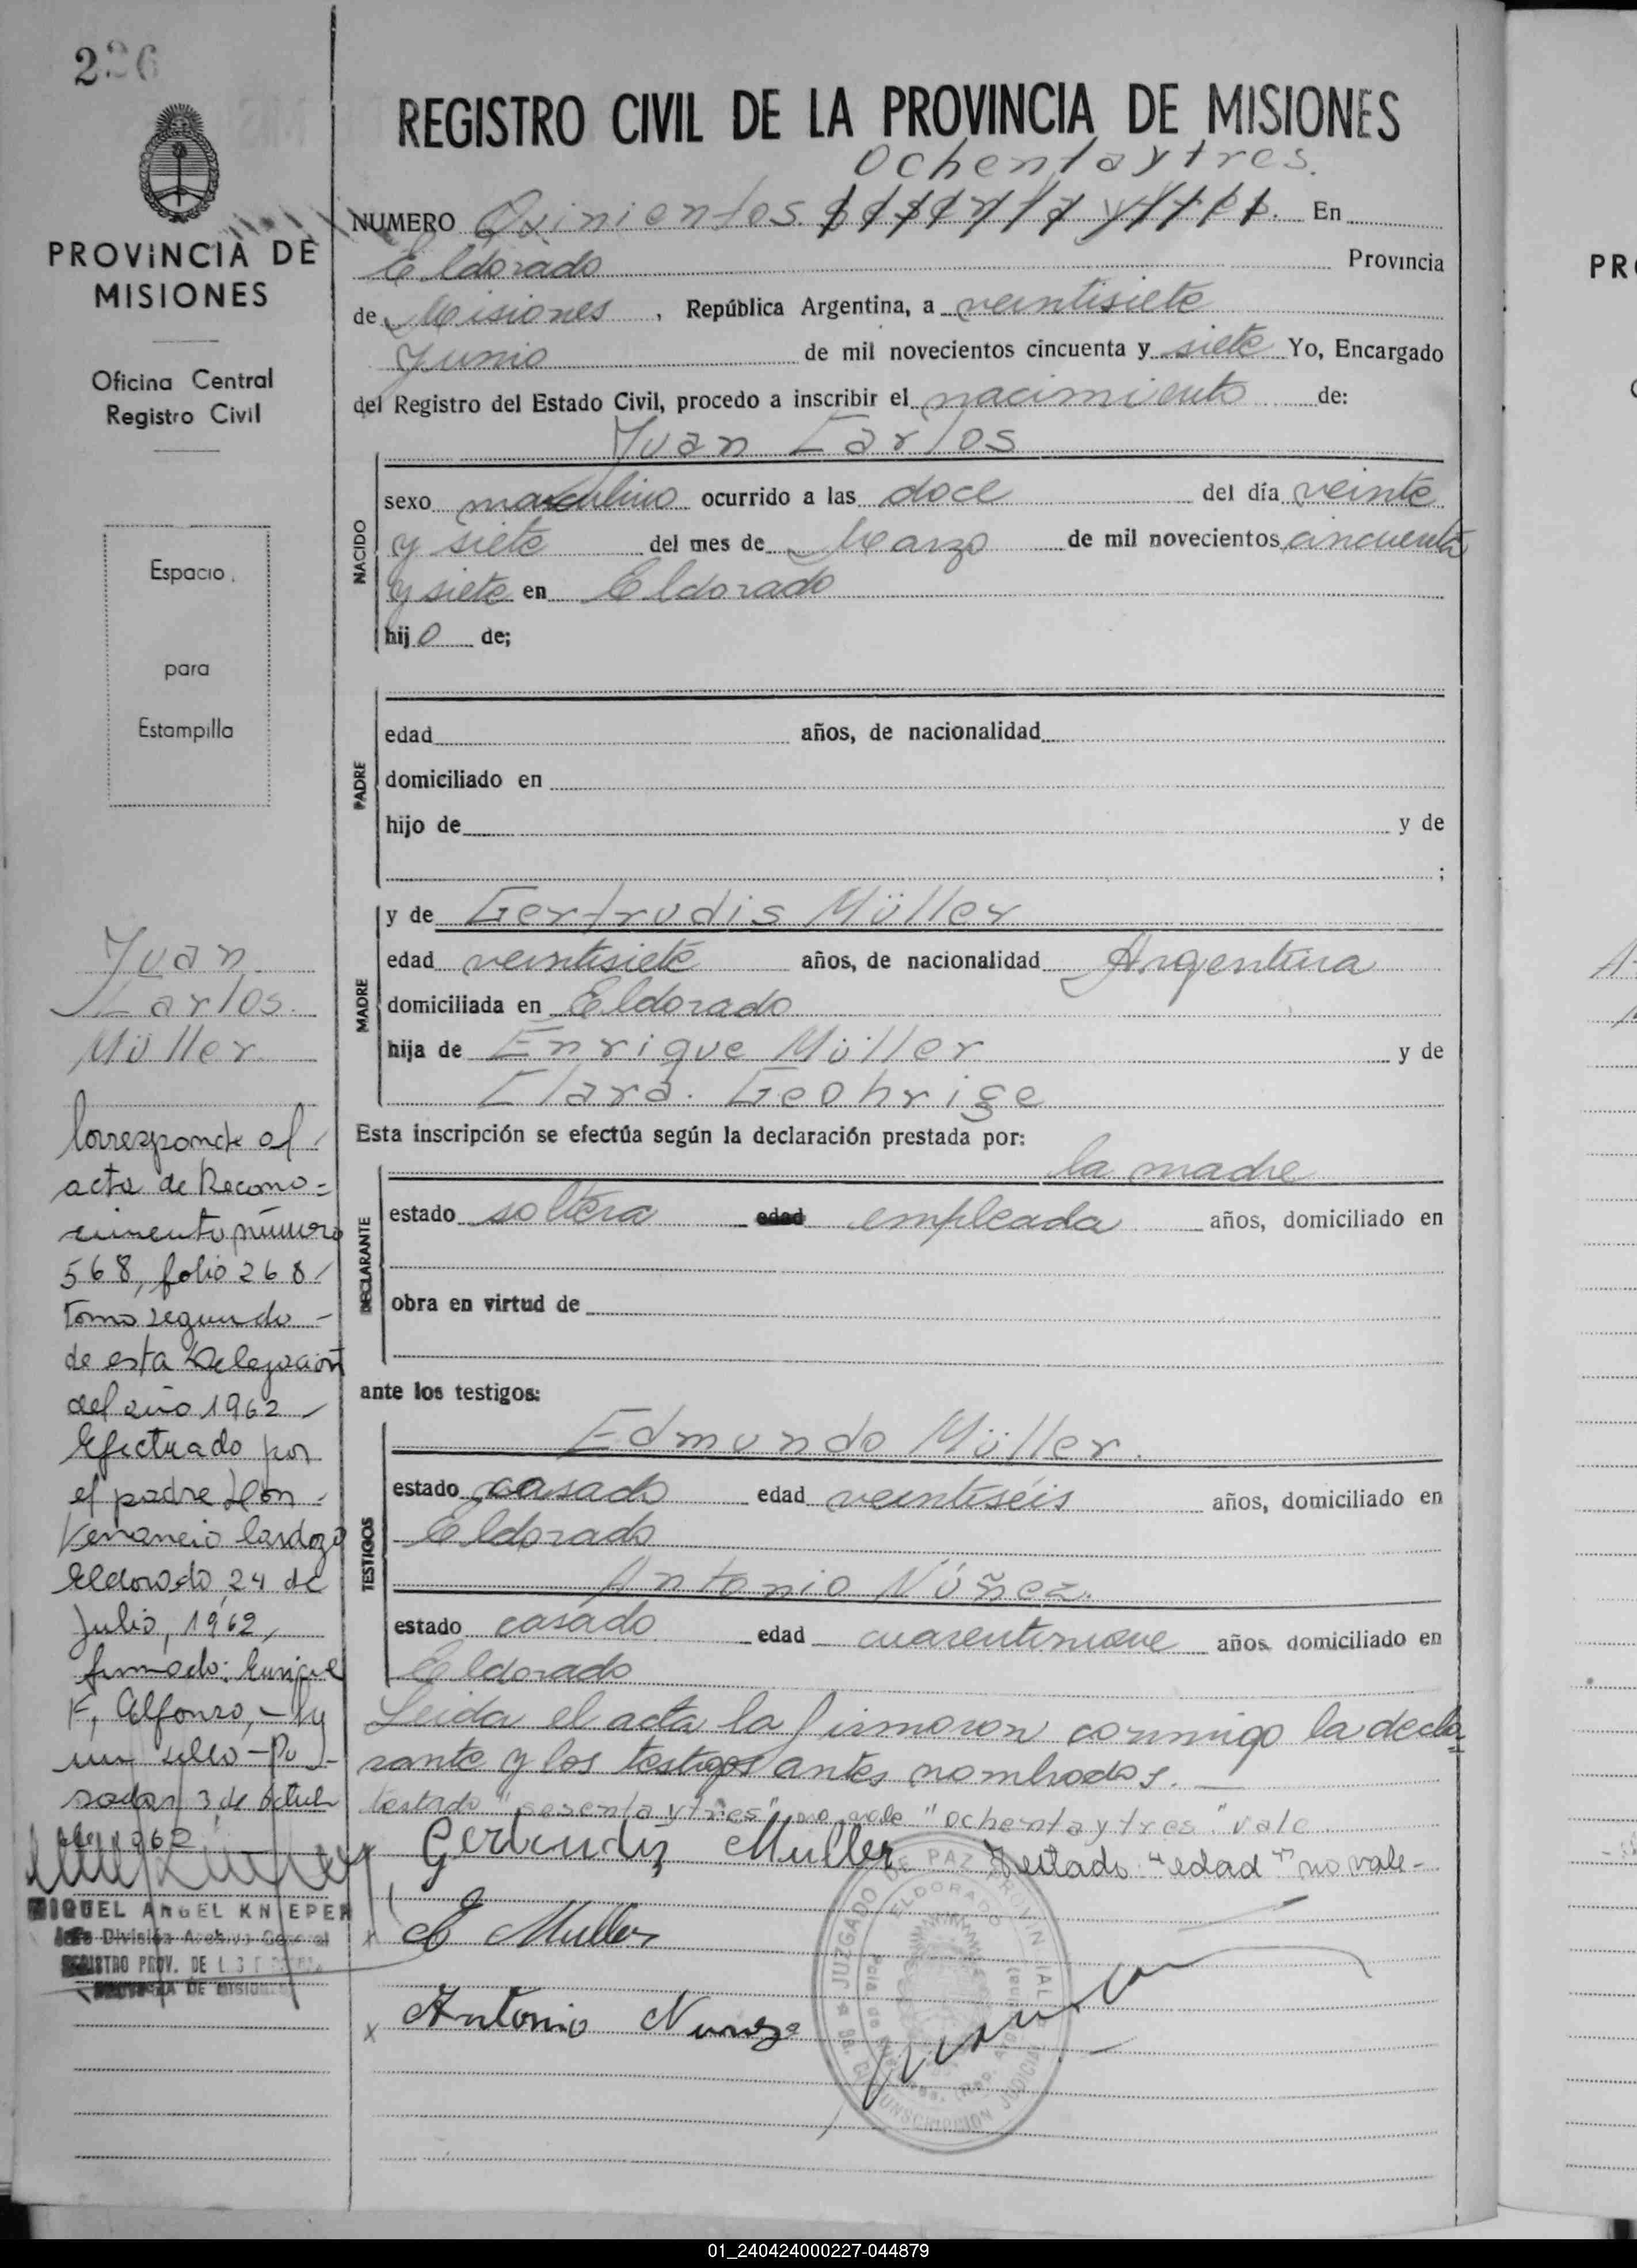 226
PROVINCIA DE
MISIONES
Oficina Central
Registro Civil
Espacio
para
Estampilla
Juan
Carlos
Müller
Corresponde al
acta de Recono=
cimiento número
568, folio 268
tomo segundo -
de esta Delegación
del año 1962
Efectuado por
el padre Don
Venancio Cardozo
Eldorado 24 de
Julio, 1962,
firmado: Enrique
F. Alfonso, - hay
un sello - Po
sadas 3 de Octub
de 1962
MIGUEL ANGEL KNIEPER
Jefe División Archivo General
REGISTRO PROV. DE L
PROVINCIA DE MISIONES
REGISTRO CIVIL DE LA PROVINCIA DE MISIONES
Ochenta y tres.
NUMERO Quinientos sesenta y tres. En
Eldorado Provincia
de Misiones, República Argentina, a veintisiete
Junio de mil novecientos cincuenta y siete Yo, Encargado
del Registro del Estado Civil, procedo a inscribir el nacimiento de:
Juan Carlos
NACIDO
sexo masculino ocurrido a las doce del día veinte
y siete del mes de Marzo de mil novecientos cincuenta
y siete en Eldorado
hijo de;
PADRE
edad años, de nacionalidad
domiciliado en
hijo de y de
;
MADRE
y de Gertrudis Müller
edad veintisiete años, de nacionalidad Argentina
domiciliada en Eldorado
hija de Enrique Müller y de
Clara. Geohrige
Esta inscripción se efectúa según la declaración prestada por:
la madre
DECLARANTE
estado soltera edad empleada años, domiciliado en
obra en virtud de
ante los testigos:
TESTIGOS
Edmundo Müller.
estado casado edad veintiséis años, domiciliado en
Eldorado
Antonio Núñez.
estado casado edad cuarentinueve años domiciliado en
Eldorado
Leida el acta la firmaron conmigo la decla=
rante y los testigos antes nombrados.
testado "sesenta y tres" no vale "ochenta y tres" vale.
Gertrudis Muller Testado: "edad" no vale-
E Muller
Antonio Nunez
JUZGADO DE PAZ
ELDORADO
CIRCUNSCRIPCION JUDICIAL
PR
01_240424000227-044879